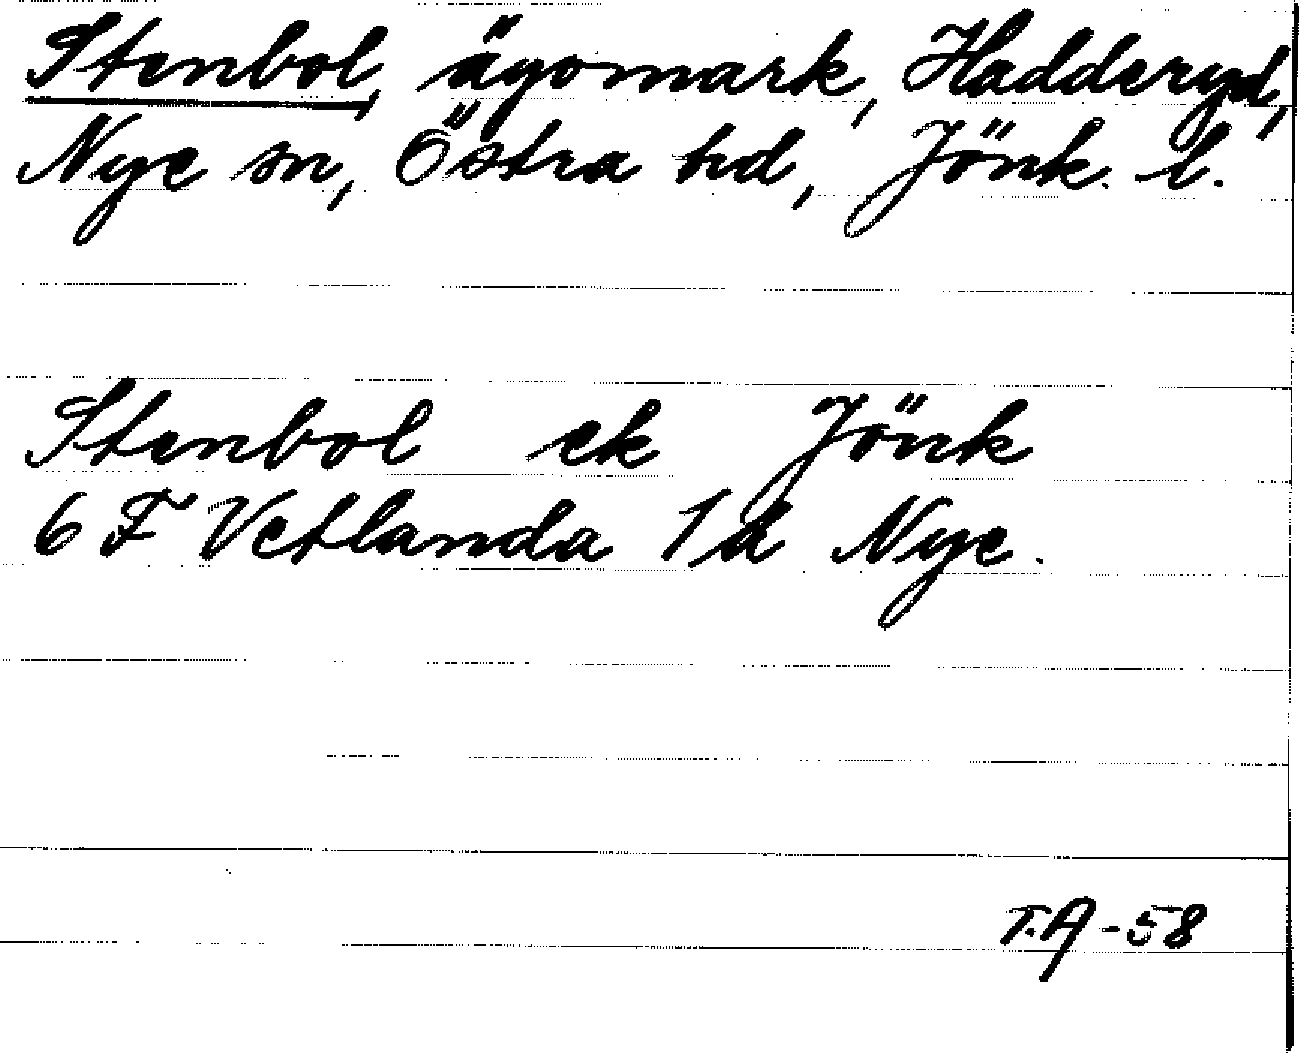 Stenbol, ägomark, Hadderyd,
Nye sn, Östra hd, Jönk. l.
Stenbol ek Jönk
6 F Vetlanda 1 d Nye.
T.A -58